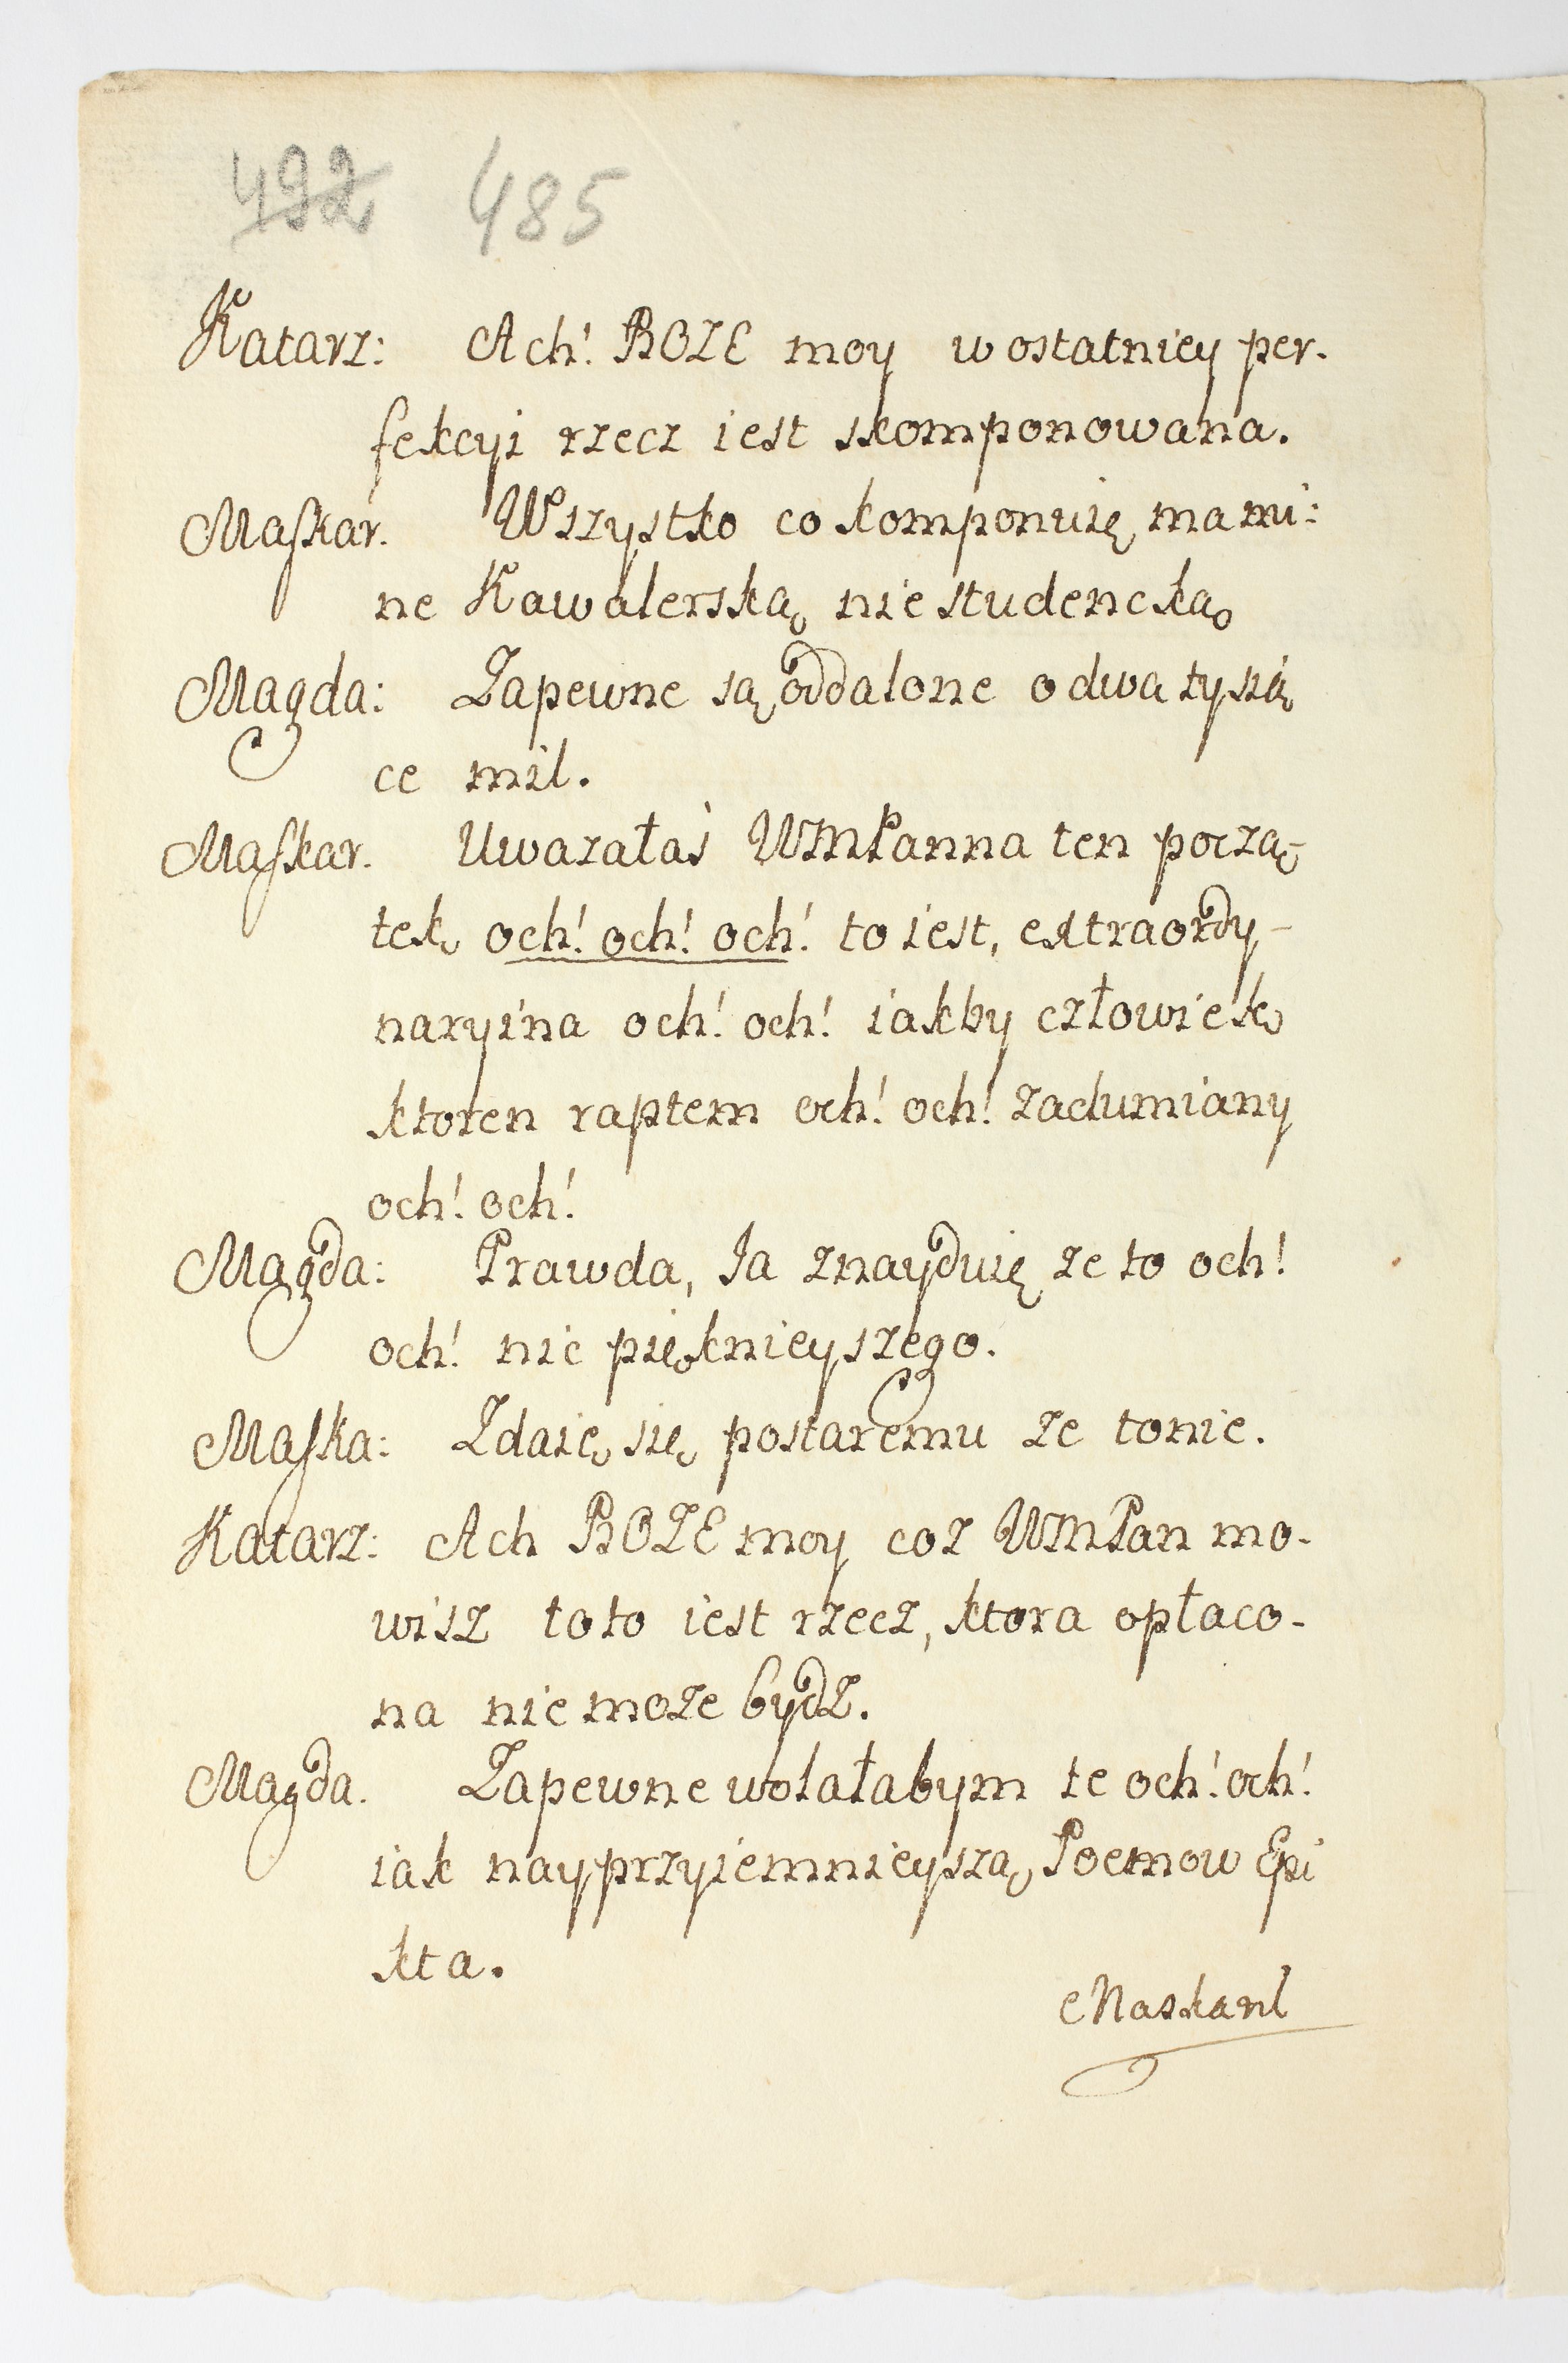 492 485
Katarz: Ach! BOZE moy w ostatniey per.
fekcyi rzecz iest skomponowana.
Maſkar. Wszystko co komponuię ma mi:
ne Kawalerską nie studencką
Magda: Zapewne są oddalone o dwa tysią
ce mil.
Maſkar. Uwazałaś WMPanna ten począ-
tek och! och! och! to iest, extraordy-
naryina och! och! iakby człowiek
ktoren raptem och! och! zadumiany
och! och!
Magda: Prawda, Ja znayduię ze to och!
och! nic pięknieyszego.
Maſka: Zdaię się postaremu ze to nie.
Katarz: Ach BOZE moy coz WMPan mo-
wisz to to iest rzecz, ktora opłaco-
na nie moze bydz.
Magda. Zapewne wolałabym te och! och!
iak nayprzyiemnieyszą Poemow Epi
kta.
Maskaril